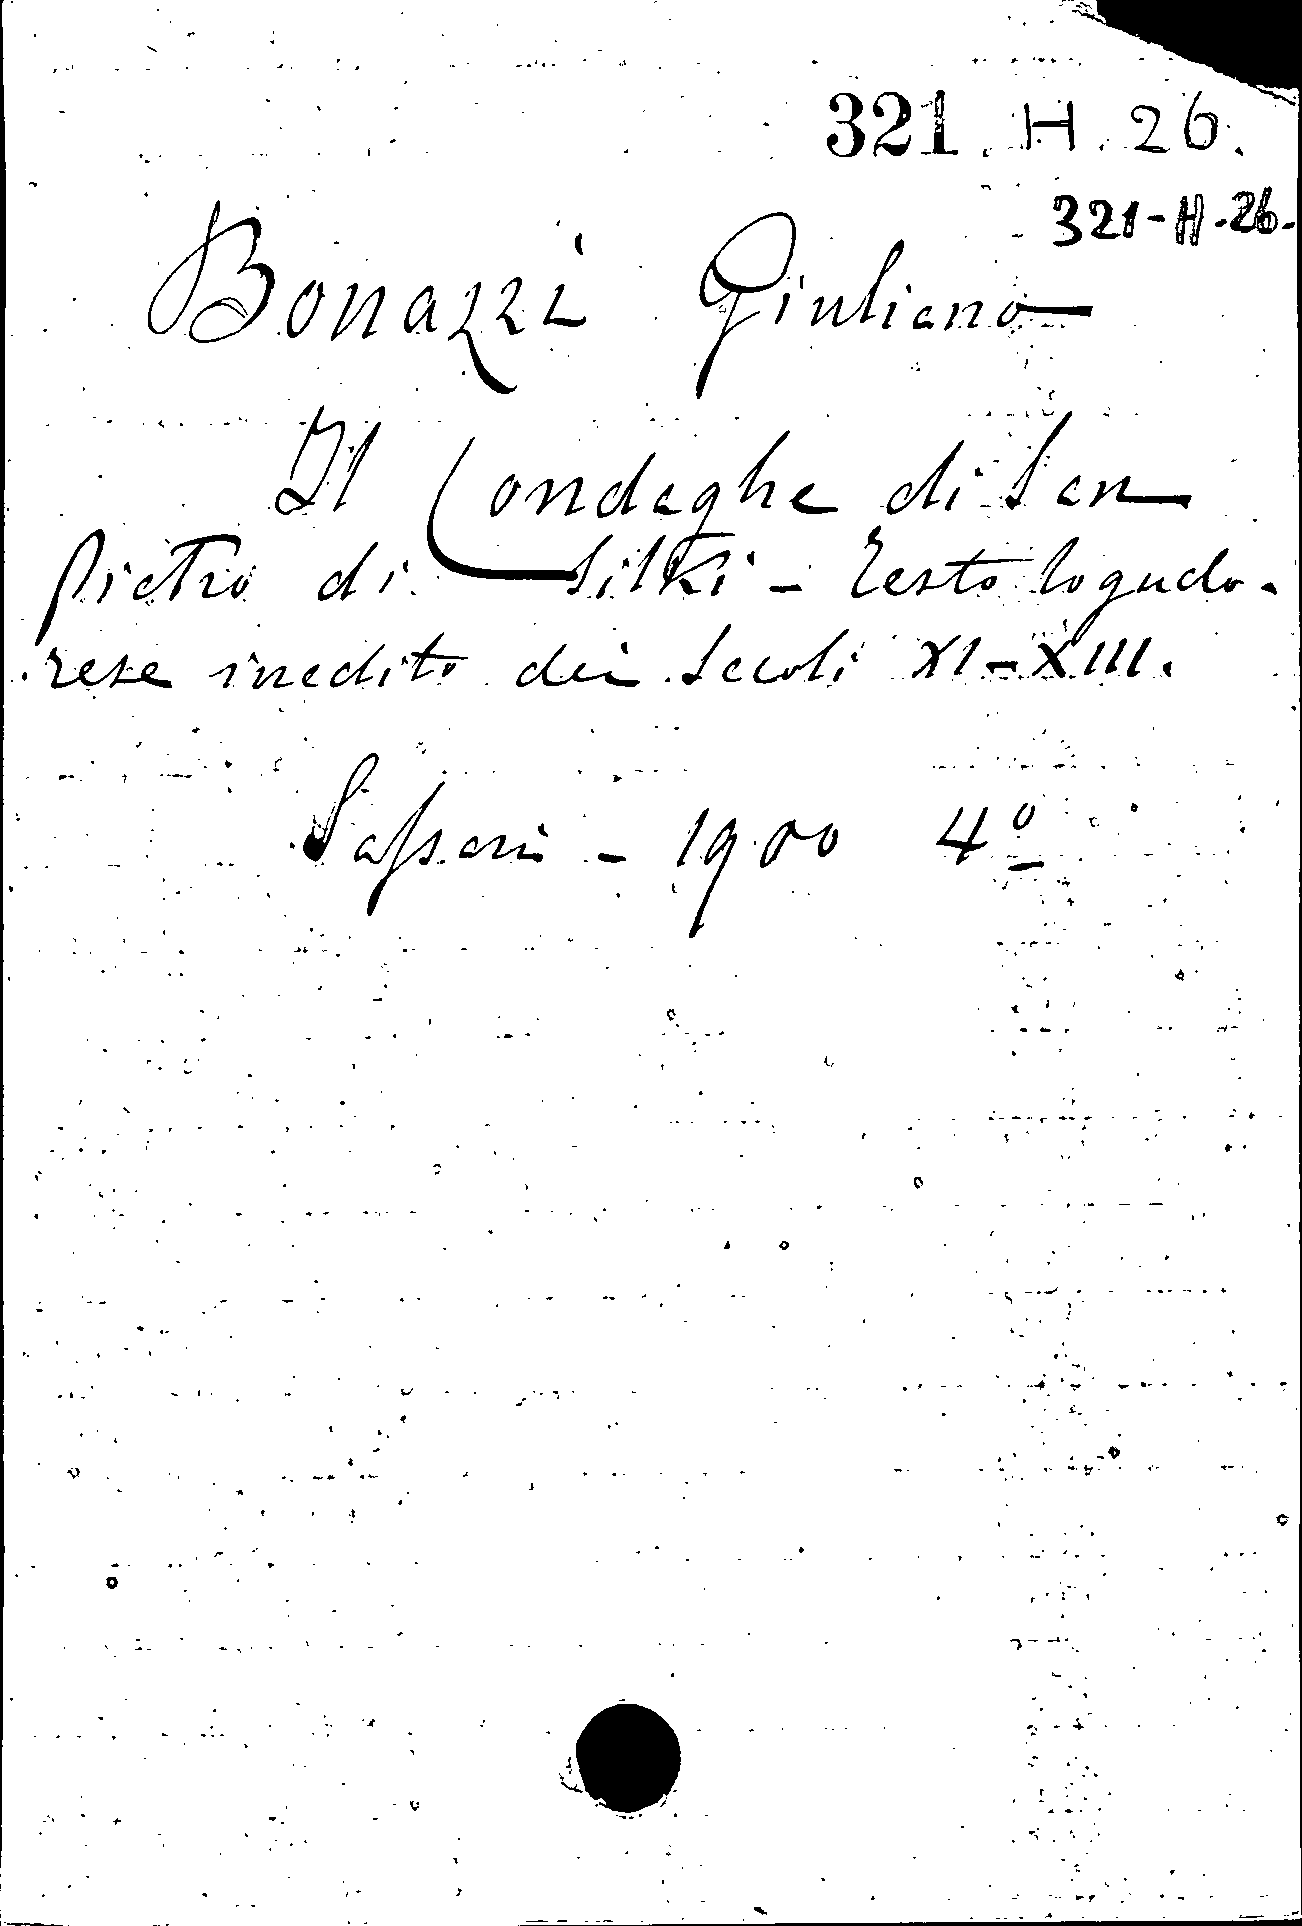 321. H. 26.
321-H-26-
Bonazzi Giuliano
Il Condaghe di San
Pietro di Silki - Testo logudo-
rese inedito dei Secoli XI-XIII.
Sassari - 1900 4º